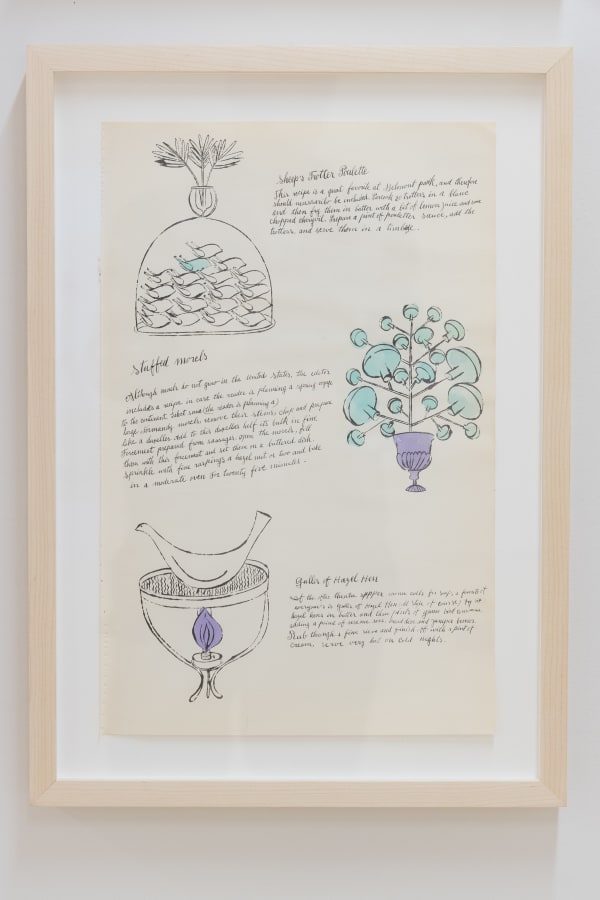 Sheep's Trotter Poulette
This recipe is a great favorite at Belmont park, and therefore
should necessarily be included. Parcook 20 trotters in a blanc
and then fry them in batter with a bit of lemon juice and some
chopped chervil. Prepare a pint of poulette sauce, add the
trotters and serve them in a timbale.
Stuffed morels
Although morels do not grow in the United States, the editor
includes a recipe in case the reader is planning a spring voyage
to the continent. (the reader is planning a)
large morels, remove their stems, chop and prepare
like a duxelles. Add to this duxelles half its bulk in fine
forcemeat prepared from sausages. open the morels, fill
them with this forcemeat and set them on a buttered dish.
Sprinkle with fine raspings a hazel nut or two and bake
in a moderate oven for twenty five minutes.
Gullis of Hazel Hen
At the after theatre supper calls for soup, a favorite of
everyone's is Gullis of Hazel Hen
hazel hens in butter and pints of game
adding a pound of and juniper berries.
Rub through a fine sieve and finish it with a pint of
cream, serve very hot on cold nights.